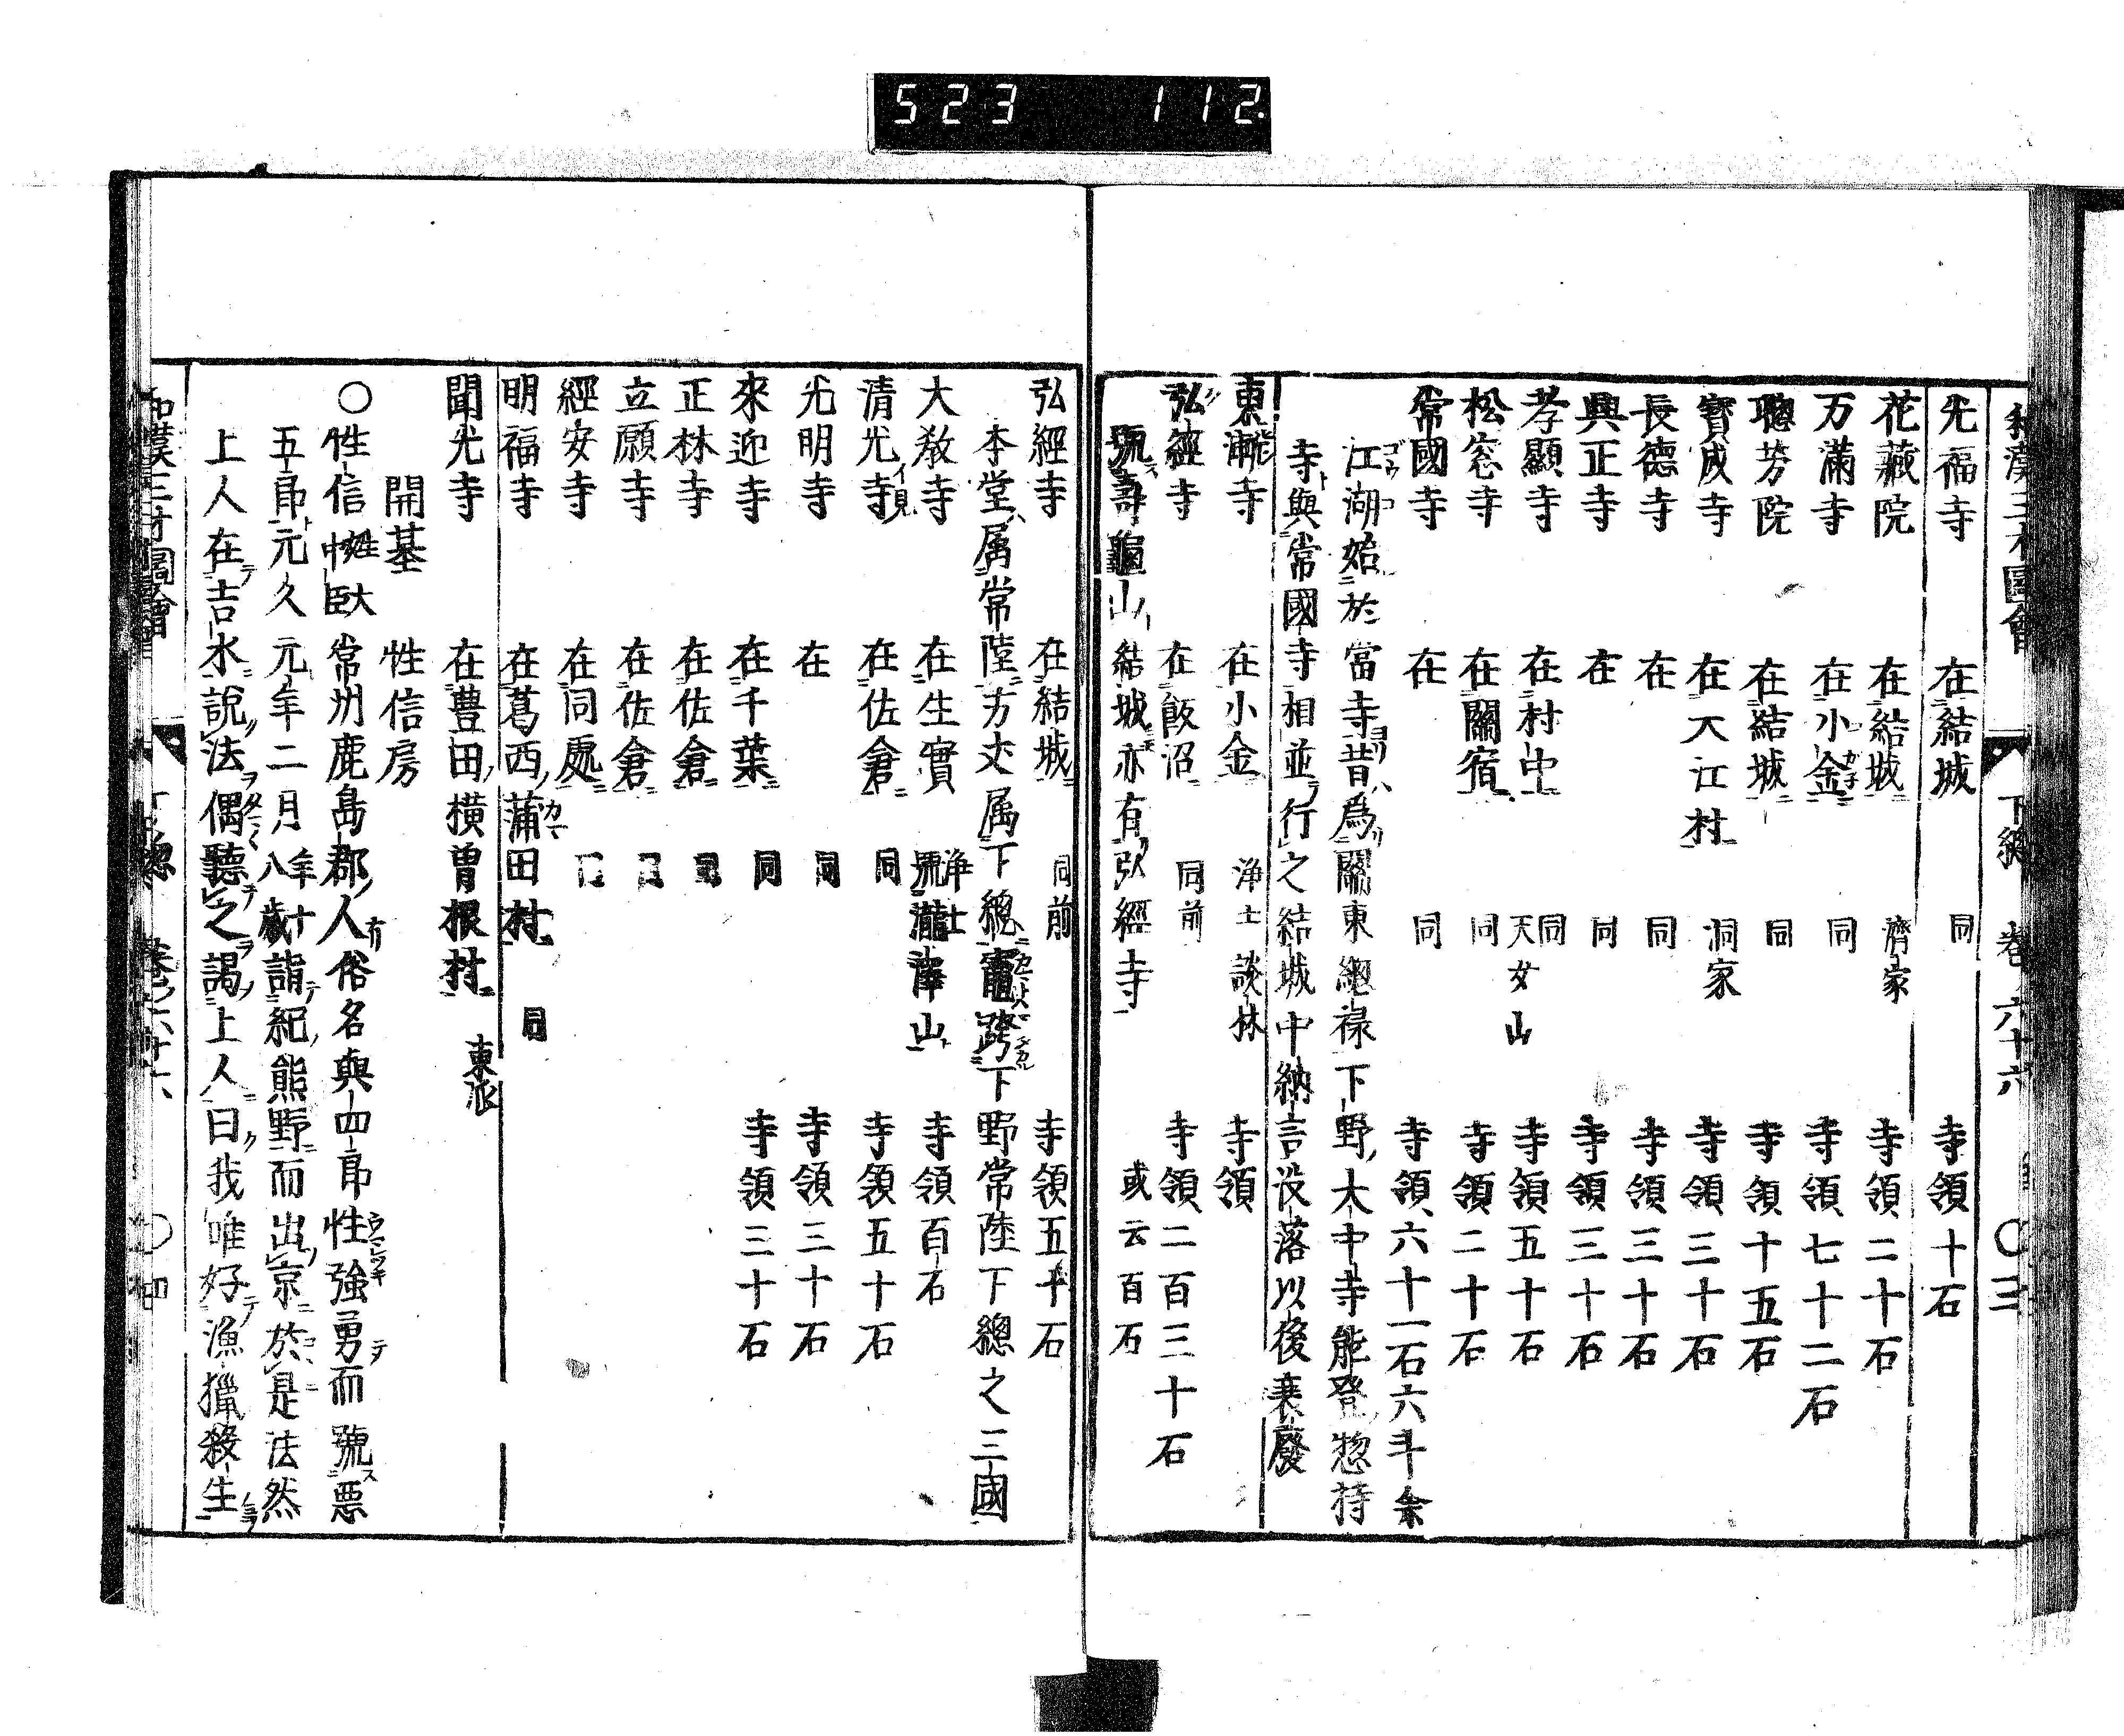 523 112
和漢三才圖會 下總 卷六十六 〇三
光福寺 在結城 同 寺領十石
花藏院 在結城 濟家 寺領二十石
万滿寺 在小金 同 寺領七十二石
聰芳院 在結城 同 寺領十五石
寶成寺 在大江村 洞家 寺領三十石
長德寺 在 同 寺領三十石
興正寺 在 同 寺領三十石
孝顯寺 在村中 同 天女山 寺領五十石
松窓寺 在關宿 同 寺領二十石
常國寺 在 同 寺領六十一石六斗余
江湖始於當寺昔爲關東總祿下野大中寺能登惣持
寺與常國寺相並行之結城中納言没落以後衰廢
東漸寺 在小金 浄土談林 寺領
弘經寺 在飯沼 同前 寺領二百三十石
號壽龜山結城亦有弘經寺 或云百石
弘經寺 在結城 同前 寺領五十石
本堂属常陸方丈属下總竈跨下野常陸下總之三國
大敎寺 在生實 浄土 號瀧澤山 寺領百石
清光寺 在佐倉 同 寺領五十石
光明寺 在 同 寺領三十石
來迎寺 在千葉 同 寺領三十石
正林寺 在佐倉 同
立願寺 在佐倉 同
經安寺 在同處 同
明福寺 在葛西蒲田村 同
聞光寺 在豊田横曽根村 東派
開基 性信房
〇性信 姓大中臣 常州鹿島郡人俗名與四郎性強勇而號悪
五郎元久元年二月 年十八歳 詣紀熊野而出京於是法然
上人在吉水說法偶聽之謁上人曰我唯好漁獵殺生
和漢三才圖會 下總 卷之六十六 〇四